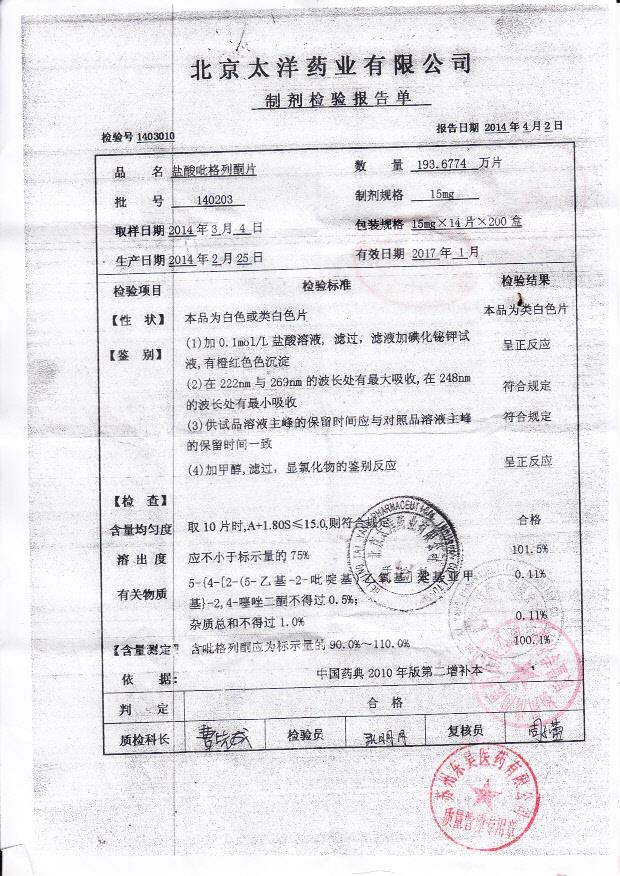 北京太洋药业有限公司
制剂检验报告单
检验号 1403010
报告日期 2014 年 4 月 2 日
品 名 盐酸吡格列酮片 数 量 193.6774 万片
批 号 140203 制剂规格 15mg
取样日期 2014 年 3 月 4 日 包装规格 15mg×14 片×200 盒
生产日期 2014 年 2 月 25 日 有效日期 2017 年 1 月
检验项目 检验标准 检验结果
【性 状】 本品为白色或类白色片 本品为类白色片
【鉴 别】 (1)加 0.1mol/L 盐酸溶液, 滤过, 滤液加碘化铋钾试 呈正反应
液,有橙红色色沉淀
(2)在 222nm 与 269nm 的波长处有最大吸收,在 248nm 符合规定
的波长处有最小吸收
(3)供试品溶液主峰的保留时间应与对照品溶液主峰 符合规定
的保留时间一致
(4)加甲醇,滤过, 显氯化物的鉴别反应 呈正反应
【检 查】
含量均匀度 取 10 片时,A+1.80S≤15.0,则符合规定 合格
溶 出 度 应不小于标示量的 75% 101.5%
有关物质 5-{4-[2-(5-乙基-2-吡啶基)乙氧基] 亚甲 0.11%
基}-2,4-噻唑二酮不得过 0.5%;
杂质总和不得过 1.0% 0.11%
【含量测定】 含吡格列酮应为标示量的 90.0%~110.0% 100.1%
依 据: 中国药典 2010 年版第二增补本
判 定 合 格
质检科长 检验员 复核员
苏州东吴医药有限公司
质量管理专用章